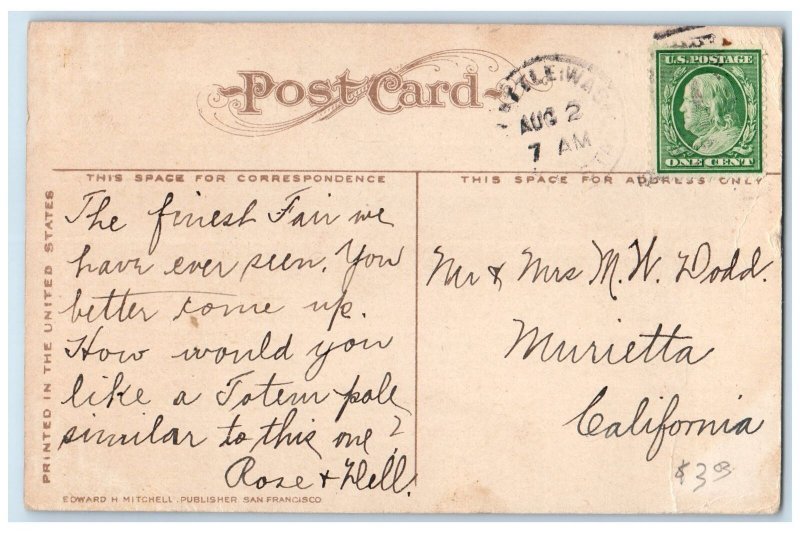 Post Card
TTLE WA
AUG 2
7 AM
U.S. POSTAGE
ONE CENT
THIS SPACE FOR CORRESPONDENCE
THIS SPACE FOR ADDRESS ONLY
PRINTED IN THE UNITED STATES
The finest Fair we
have ever seen. You
better come up.
How would you
like a Totem pole
similar to this one?
Rose + Dell.
Mr & Mrs M. W. Dodd.
Murietta
California
$3 00
EDWARD H. MITCHELL, PUBLISHER, SAN FRANCISCO